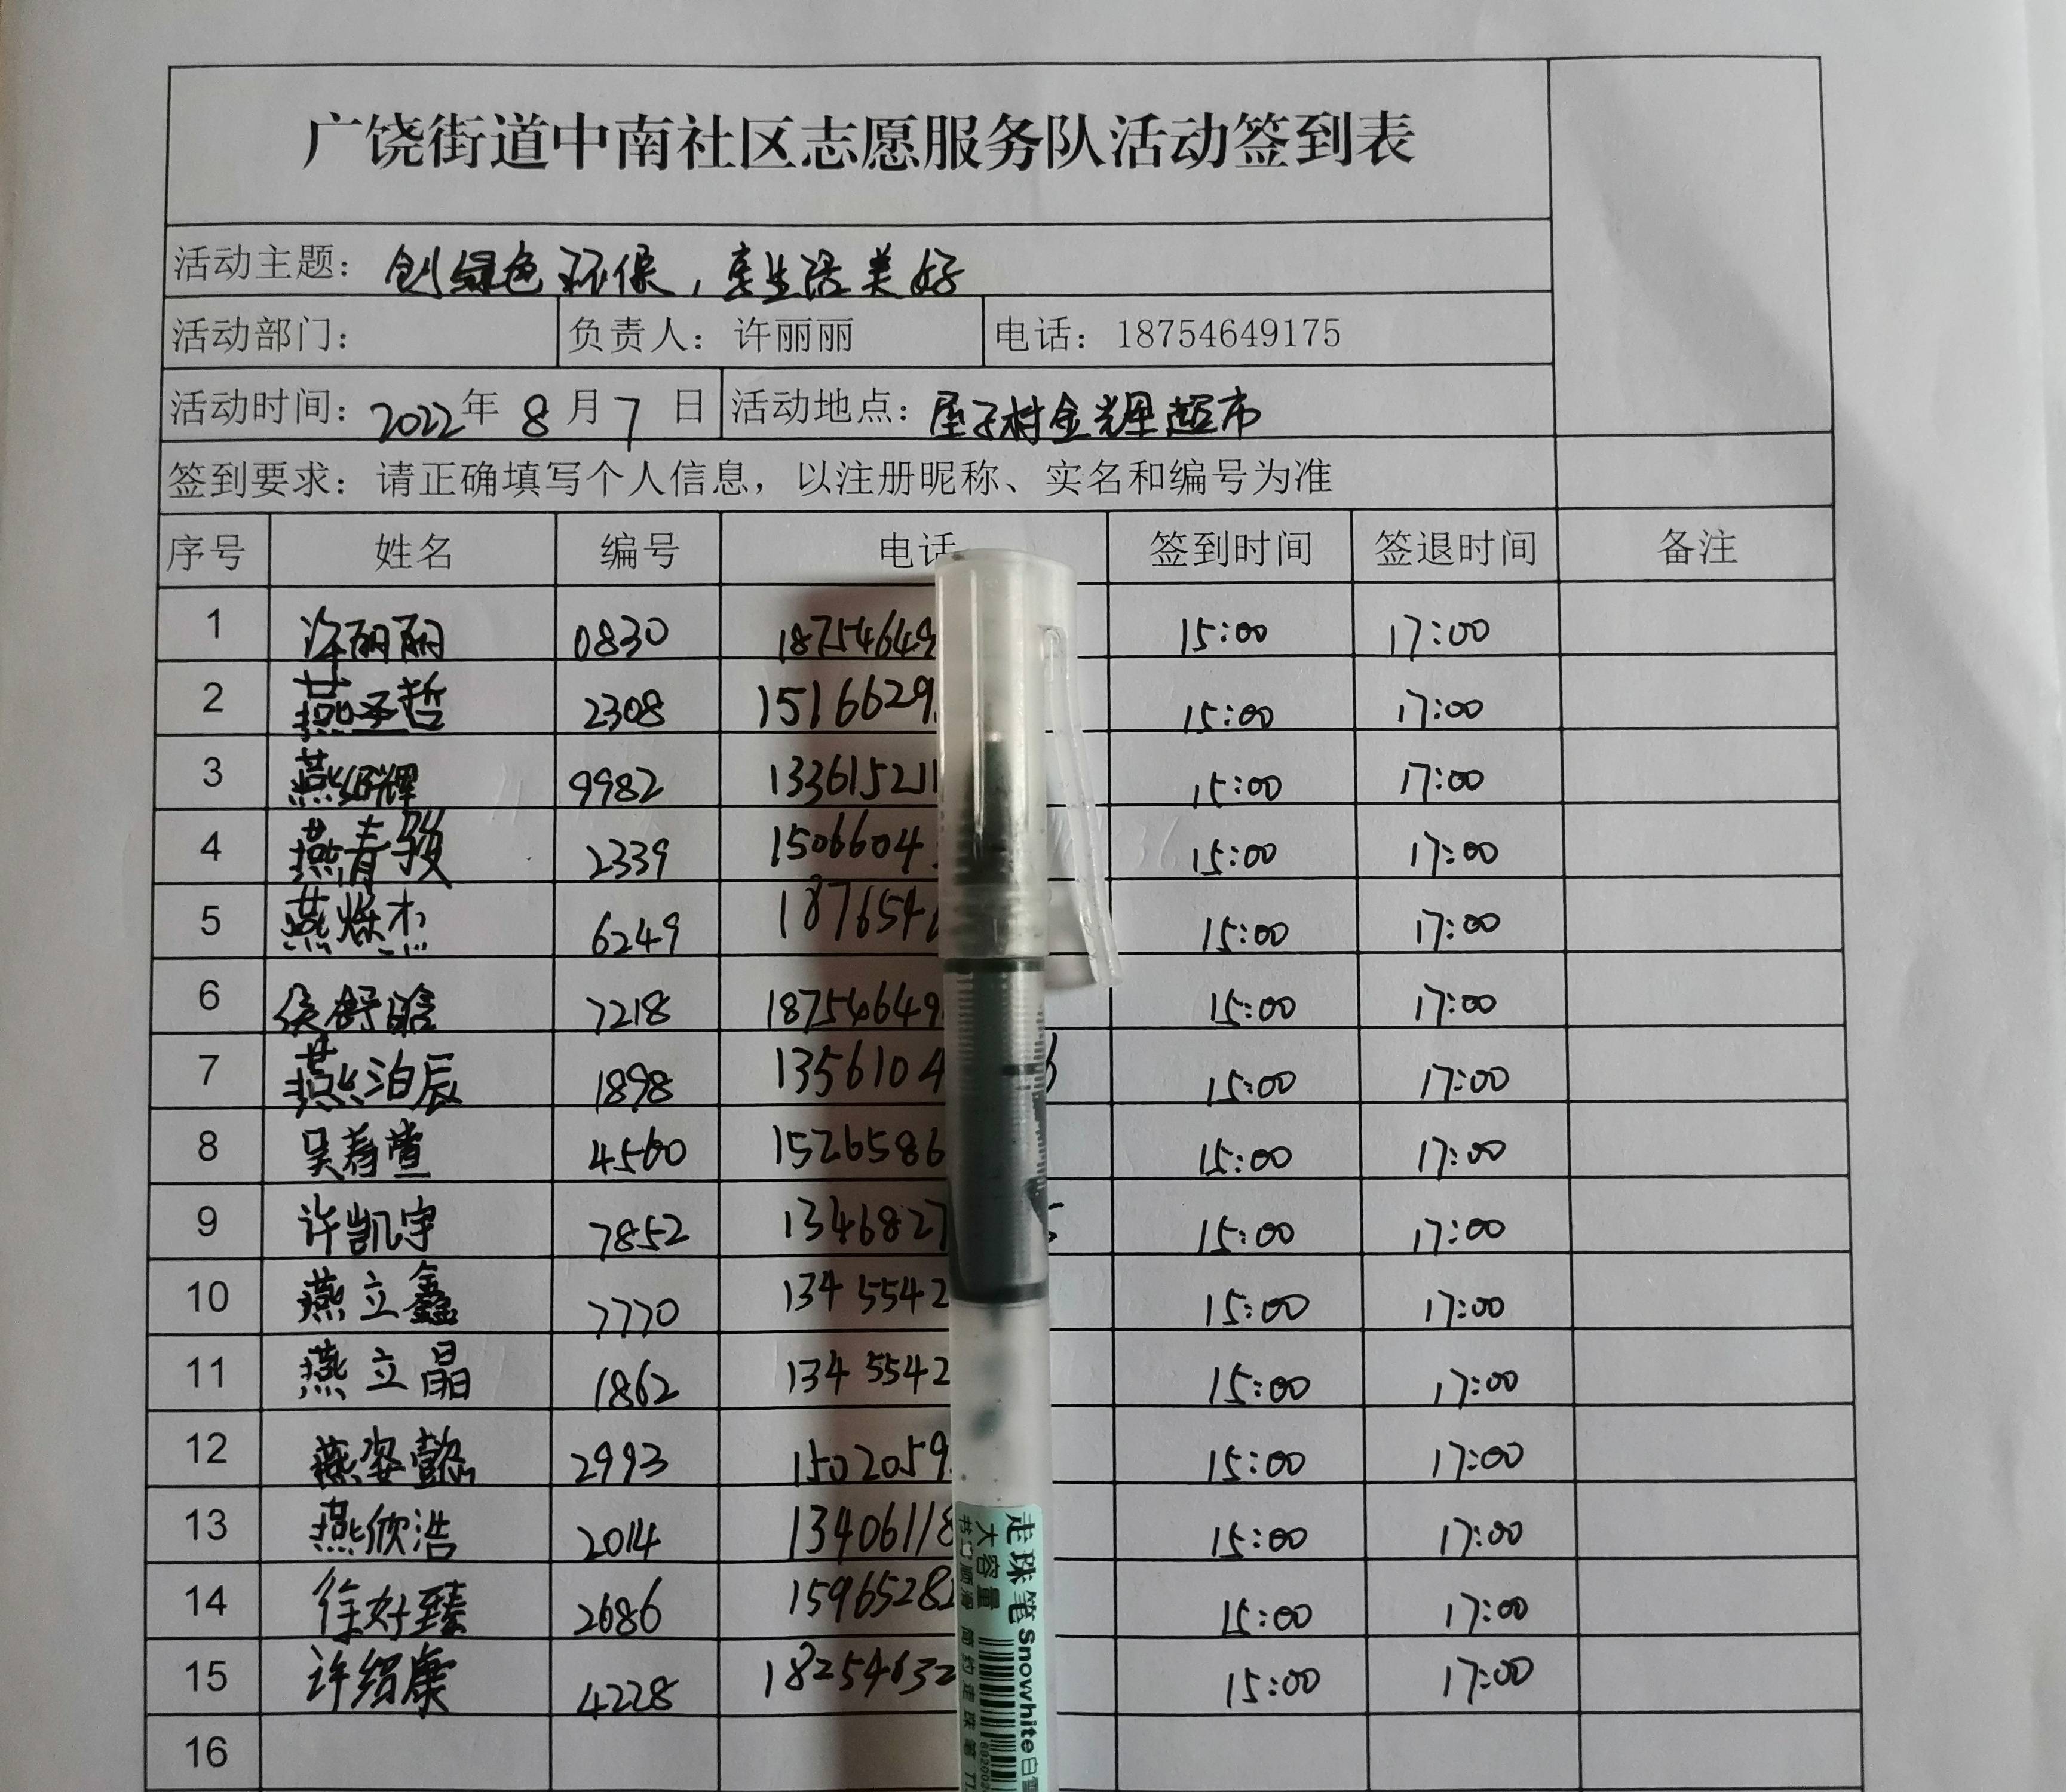 广饶街道中南社区志愿服务队活动签到表
活动主题：创绿色环保，享生活美好
活动部门： 负责人：许丽丽 电话：18754649175
活动时间：2022年 8 月 7 日 活动地点：屋子村金辉超市
签到要求：请正确填写个人信息，以注册昵称、实名和编号为准
序号 姓名 编号 电话 签到时间 签退时间 备注
1 许丽丽 0830 18754649 15:00 17:00
2 燕圣哲 2308 1516629 15:00 17:00
3 燕绍辉 9982 133615211 15:00 17:00
4 燕春毅 2339 1506604 15:00 17:00
5 燕烁杰 6249 1876542 15:00 17:00
6 侯舒晗 7218 18754649 15:00 17:00
7 燕泊辰 1898 1356104 15:00 17:00
8 吴若萱 4560 1526586 15:00 17:00
9 许凯宇 7852 1346827 15:00 17:00
10 燕立鑫 7770 134 5542 15:00 17:00
11 燕立晶 1862 134 5542 15:00 17:00
12 燕姿懿 2993 1502059 15:00 17:00
13 燕欣浩 2014 13406118 15:00 17:00
14 徐好臻 2686 15965282 15:00 17:00
15 许绍康 4228 18254632 15:00 17:00
16
走珠笔 Snowhite 白雪
大容量
书写顺滑 简约走珠笔